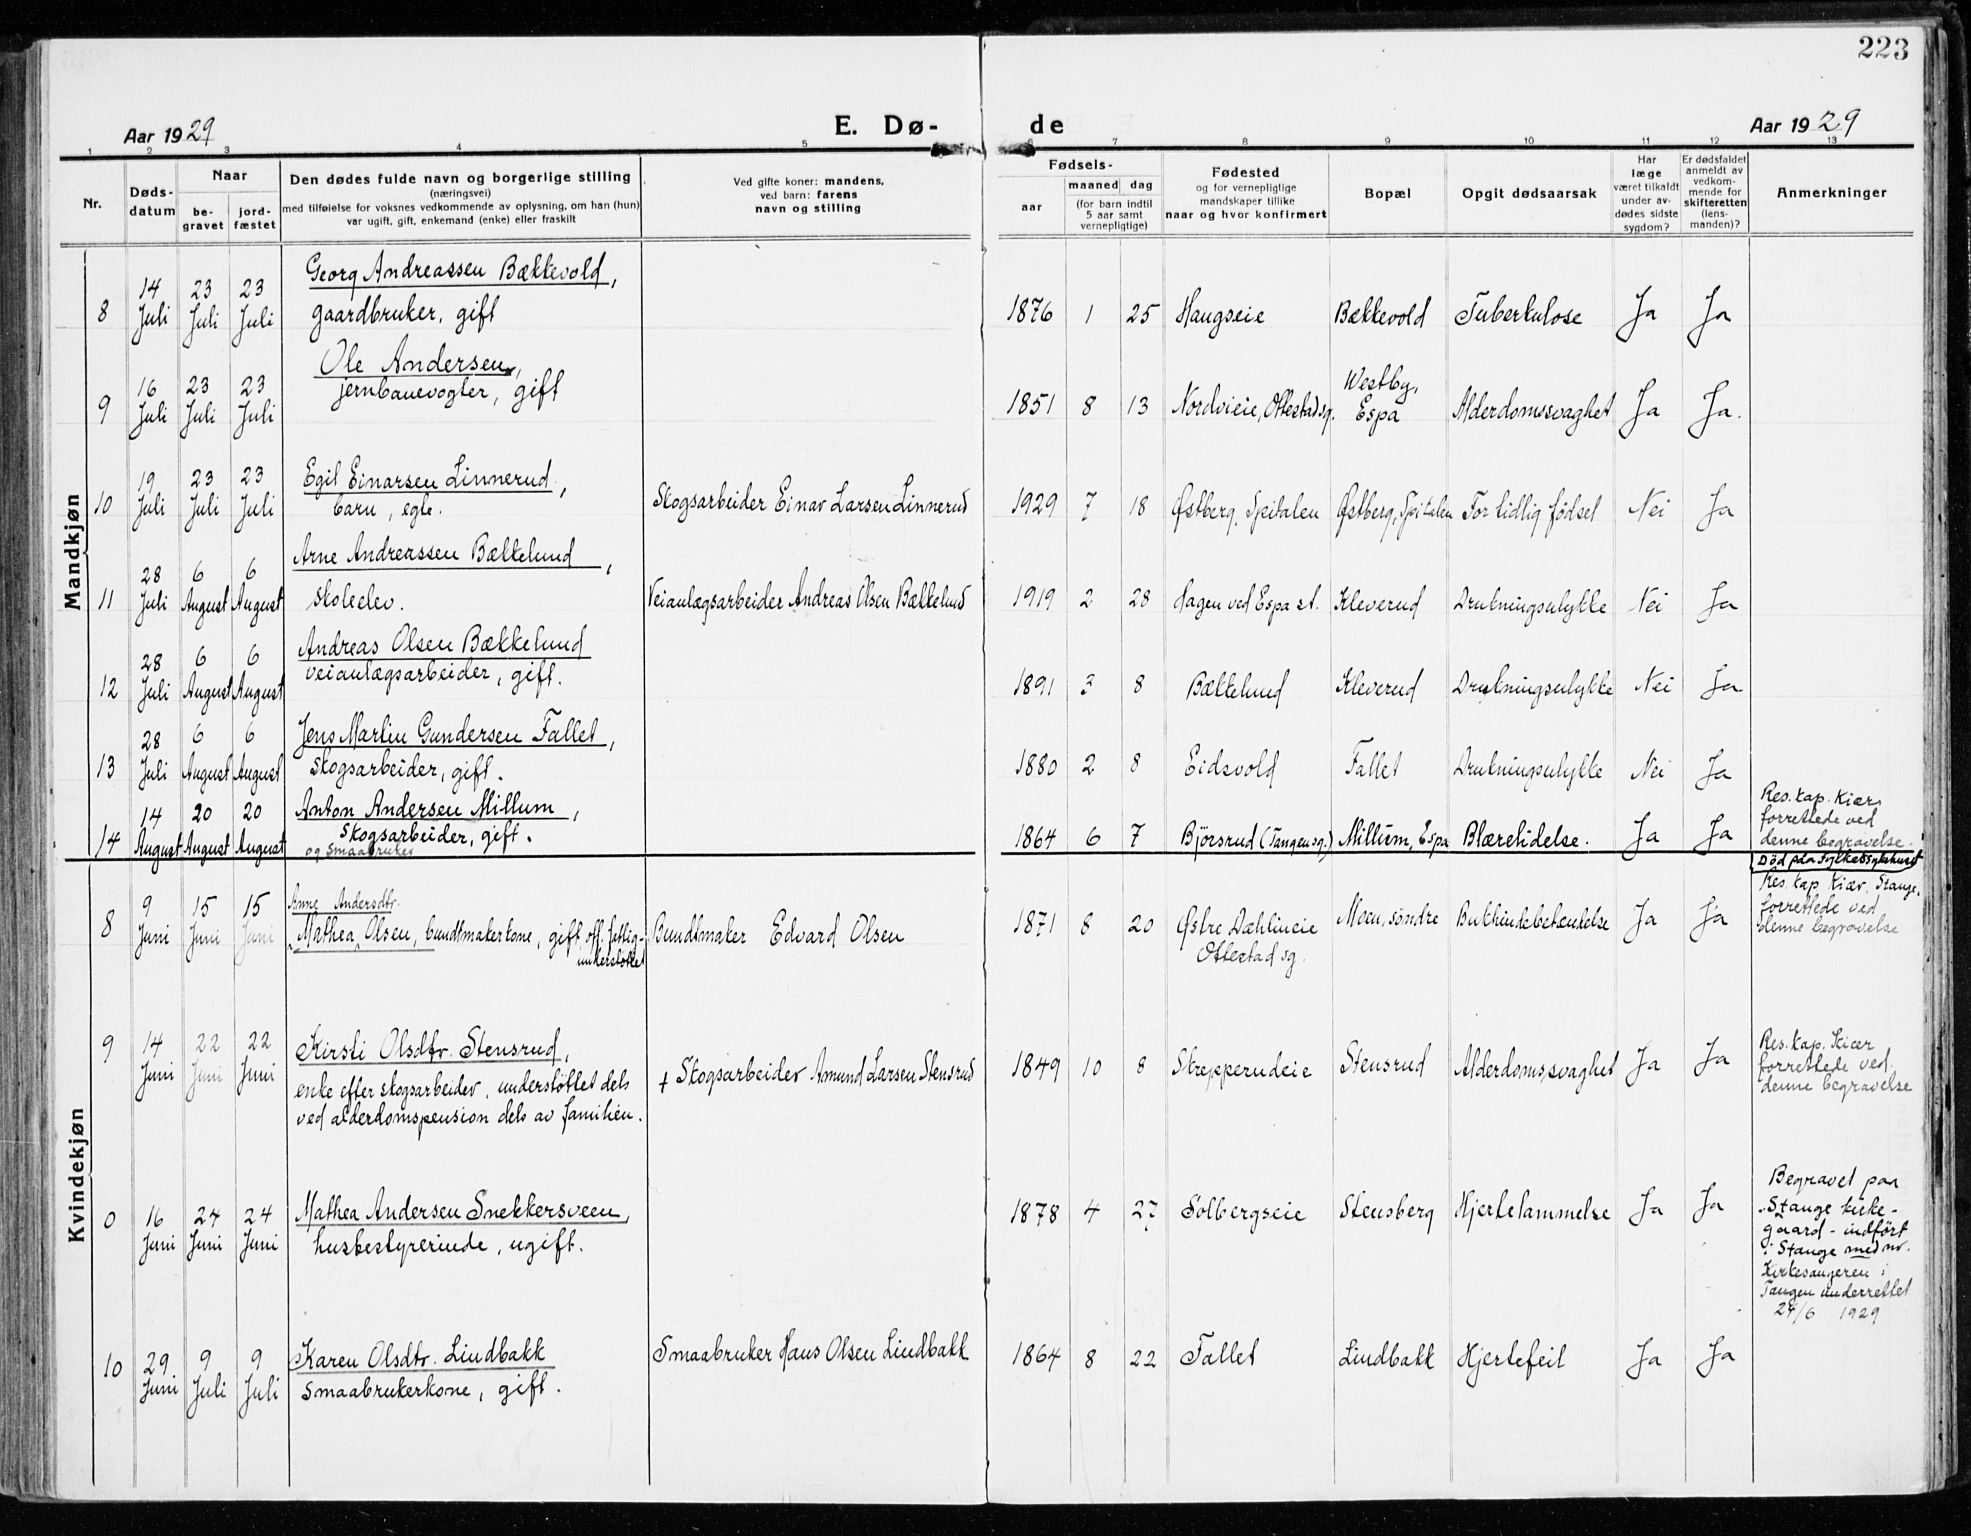 223
Aar 1929
E. Dø-
de
Aar 1929
1 2 3 4 5 6 7 8 9 10 11 12 13
Nr.
Døds-
datum
Naar
be-
gravet
jord-
fæstet
Den dødes fulde navn og borgerlige stilling
(næringsvei)
med tilføielse for voksnes vedkommende av oplysning, om han (hun)
var ugift, gift, enkemand (enke) eller fraskilt
Ved gifte koner: mandens,
ved barn: farens
navn og stilling
Fødsels-
aar
maaned dag
(for barn indtil
5 aar samt
vernepligtige)
Fødested
og for vernepligtige
mandskaper tillike
naar og hvor konfirmert
Bopæl
Opgit dødsaarsak
Har
læge
været tilkaldt
under av-
dødes sidste
sygdom?
Er dødsfaldet
anmeldt av
vedkom-
mende for
skifteretten
(lens-
manden)?
Anmerkninger
Mandkjøn
Georg Andreassen Bækkevold,
14 23 23
8 Juli Juli Juli gaardbruker, gift 1876 1 25 Haugseie Bækkevold Tuberkulose Ja Ja
Ole Andersen,
16 23 23 jernbanevogter, gift Westby,
9 Juli Juli Juli 1851 8 13 Nordvieie, Ottestad sg. Espa Alderdomssvaghet Ja Ja.
19 23 23 Egil Einarsen Linnerud,
10 Juli Juli Juli barn, egte. Skogsarbeider Einar Larsen Linnerud 1929 7 18 Østberg, Spitalen Østberg, Spitalen For tidlig fødsel Nei Ja
Arne Andreassen Bækkelund,
28 6 6
11 Juli August August skoleelev. Veianlægsarbeider Andreas Olsen Bækkelund 1919 2 28 Hagen ved Espa st. Kleverud Drukningsulykke Nei Ja
Andreas Olsen Bækkelund
28 6 6 veianlægsarbeider, gift.
12 Juli August August 1891 3 8 Bækkelund Kleverud Drukningsulykke Nei Ja
28 6 6 Jens Martin Gundersen Fallet,
13 Juli August August skogsarbeider, gift. 1880 2 8 Eidsvold Fallet Drukningsulykke Nei Ja
14 20 20 Anton Andersen Millum,
14 August August August skogsarbeider, gift. 1864 6 7 Björsrud (Tangen sg.) Millum, Espa Blærelidelse. Ja Ja
og smaabruker
Res. kap. Kiær
forrettede ved
denne begravelse.
Kvindekjøn
Død paa Fylkessykehuset
Anne Andersdtr.
9 15 15
8 Juni Juni Juni Mathea Olsen, bundtmakerkone, gift, off. fattig-
understøttet
Bundtmaker Edvard Olsen 1871 8 20 Østre Dæhlineie
Ottestad sg.
Moen, söndre Bukhindebetændelse Ja Ja
Res. kap. Kiær, Stange,
forrettede ved
denne begravelse
9 14 22 22 Kirsti Olsdtr. Stensrud,
Juni Juni Juni enke efter skogsarbeider, understöttet dels
ved alderdomspension dels av familien.
† Skogsarbeider Asmund Larsen Stensrud 1849 10 8 Strepperudeie Stensrud Alderdomssvaghet Ja Ja
Res. kap. Kiær
forrettede ved
denne begravelse
0 16 24 24 Mathea Andersen Snekkersveen,
Juni Juni Juni husbestyrerinde, ugift.
1878 4 27 Solbergseie Stensberg Hjertelammelse Ja Ja
Begravet paa
Stange kirke-
gaard - indfört
i Stange med nr.
Kirkesangeren i
Tangen underrettet
24/6 1929
10 29 9 9 Karen Olsdtr. Lindbakk
Juni Juli Juli smaabrukerkone, gift.
Smaabruker Hans Olsen Lindbakk 1864 8 22 Fallet Lindbakk Hjertefeil Ja Ja